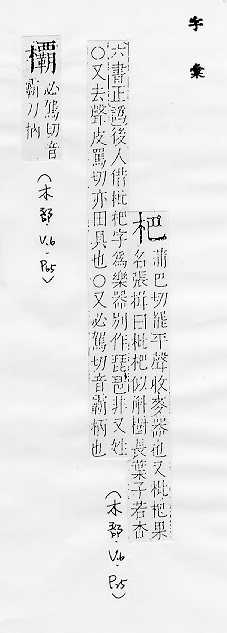 字彙
杷
蒲巴切罷平聲收麥器也又枇杷果
名張揖曰枇杷似斛樹長葉子若杏
六書正譌後人借枇杷字為樂器別作琵琶非又姓
○又去聲皮罵切亦田具也○又必駕切音霸柄也
(木部.V.6.P.25)
欛
必駕切音
霸刀柄
(木部.V.6-P.65)